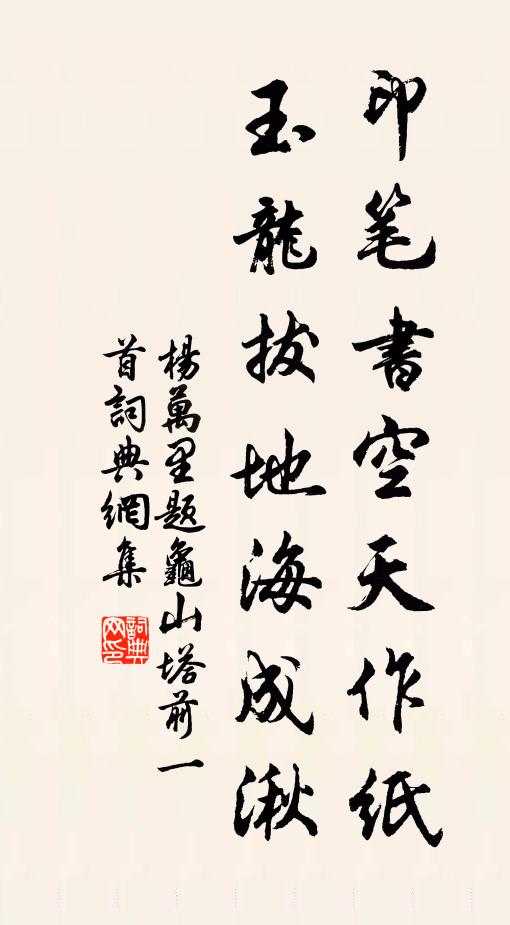 印笔書空天作紙
玉龍拔地海成湫
楊萬里题龜山塔前一
首詞典網集
詞典网印